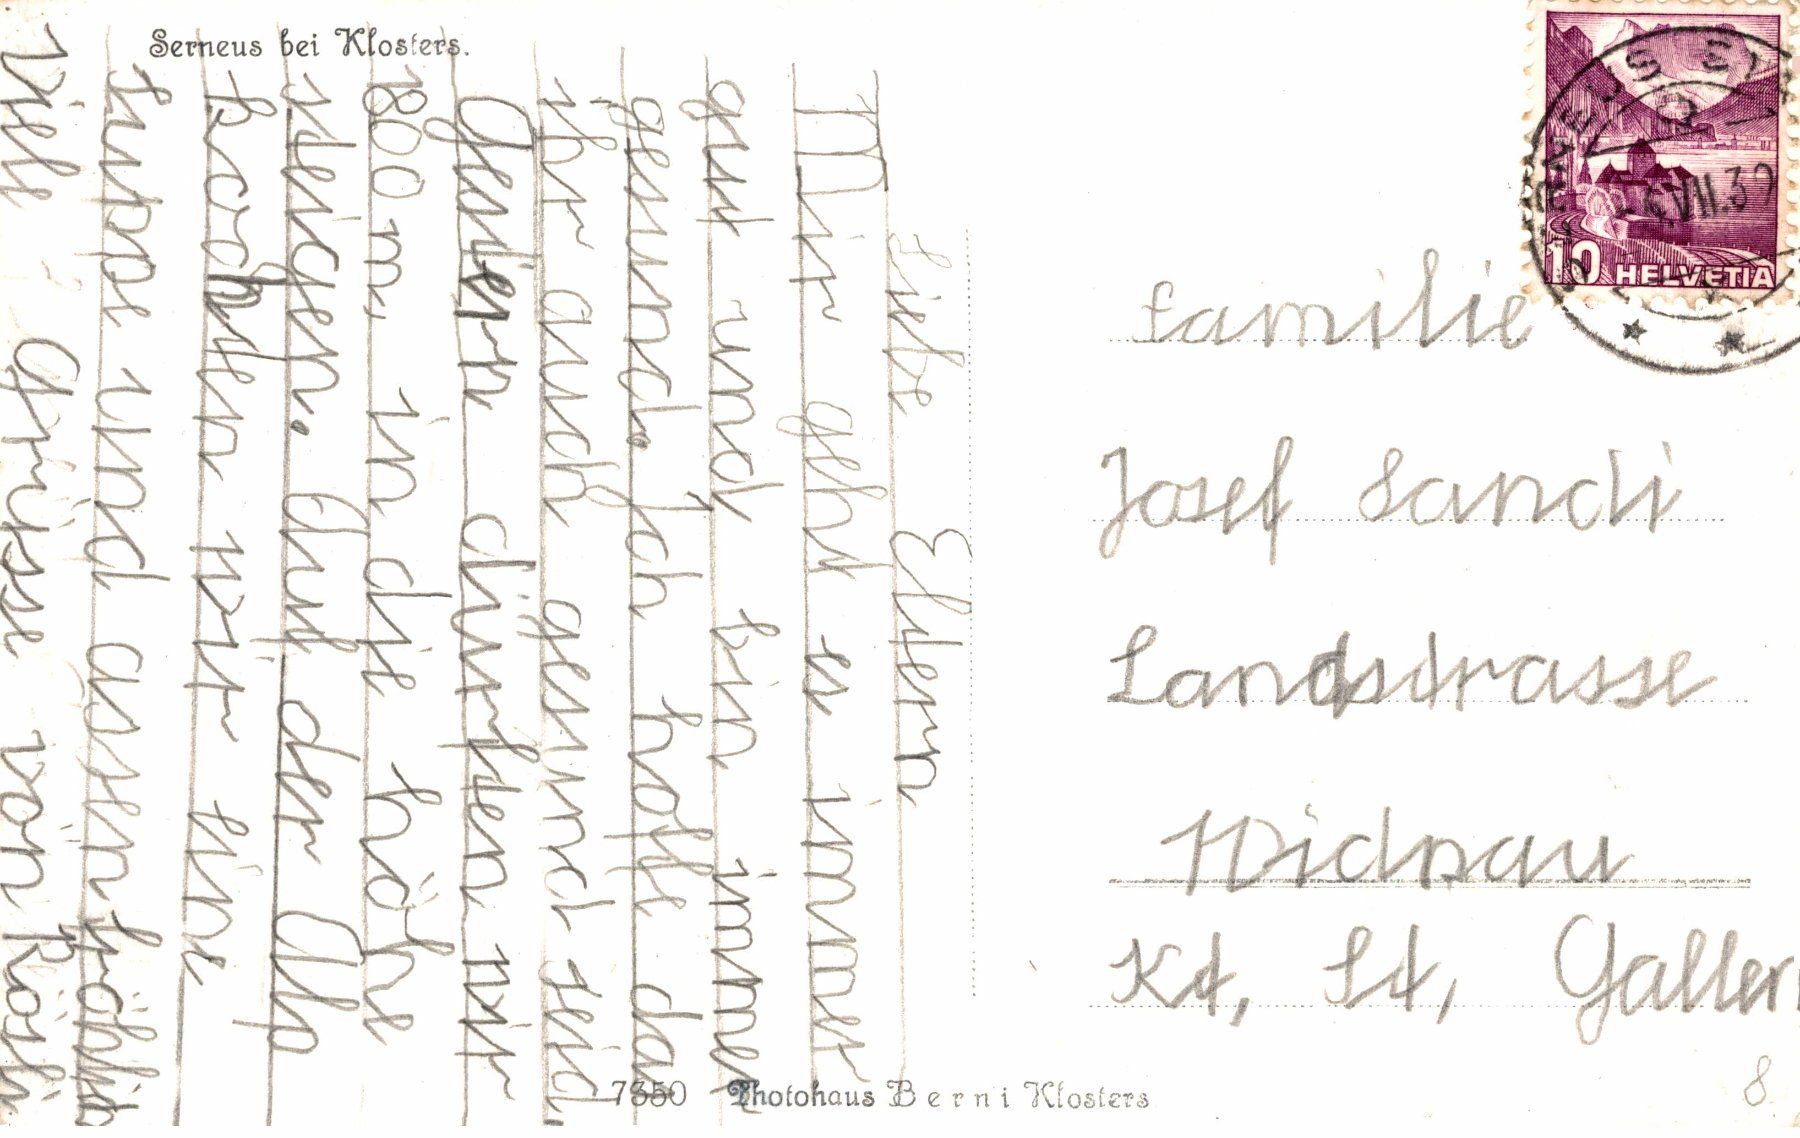 Serneus bei Klosters.
Liebe Eltern
Mir geht es immer
gut und bin immer
gesund. Ich hoffe das
ihr auch gesund seid
Gestern durften wir
1800 m, in die höhe
steigen. Auf der Alp
kochten wir eine
Suppe und assen fröhlich
Viele Grüsse von Rösli
7350 Photohaus Berni Klosters
10 HELVETIA
VII.39
Familie
Josef
Landstrasse
Widnau
Kt, St, Gallen
8